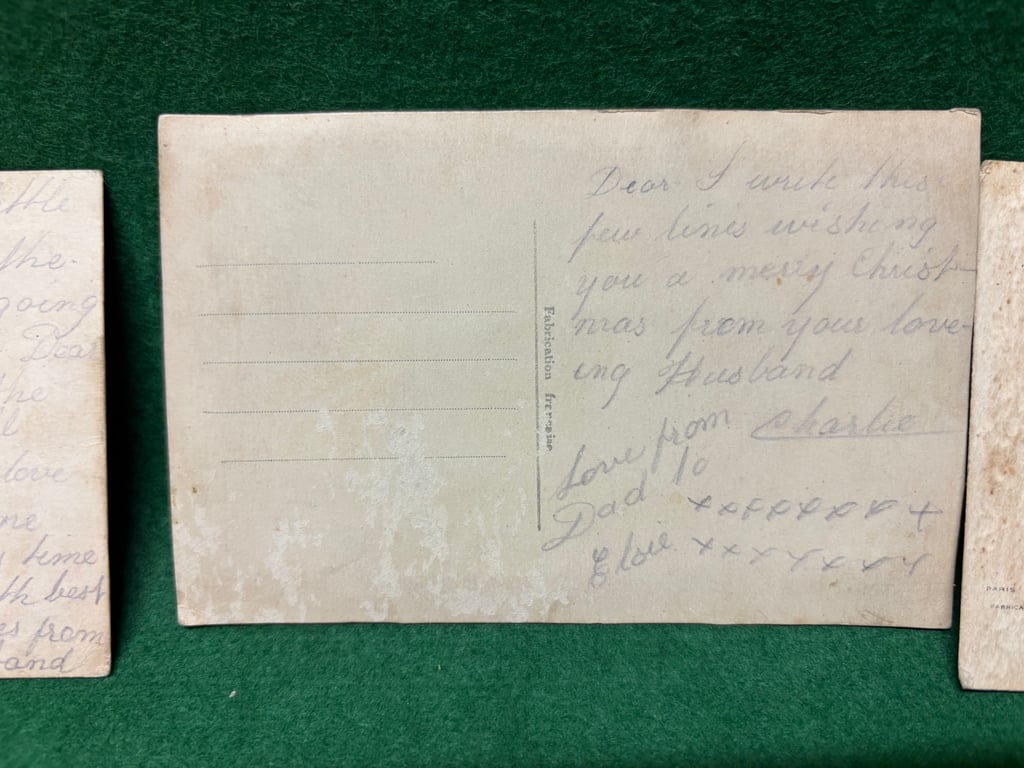 ttle
the.
going
Dear
the
l
love
me
time
th best
es from
band
Fabrication française
Dear I write this
few lines wishing
you a merry Christ-
mas from your love-
ing Husband
Charlie
Love from
Dad to
xxxxxxxx
Elsie xxxxxxx
PARIS
FABRICA